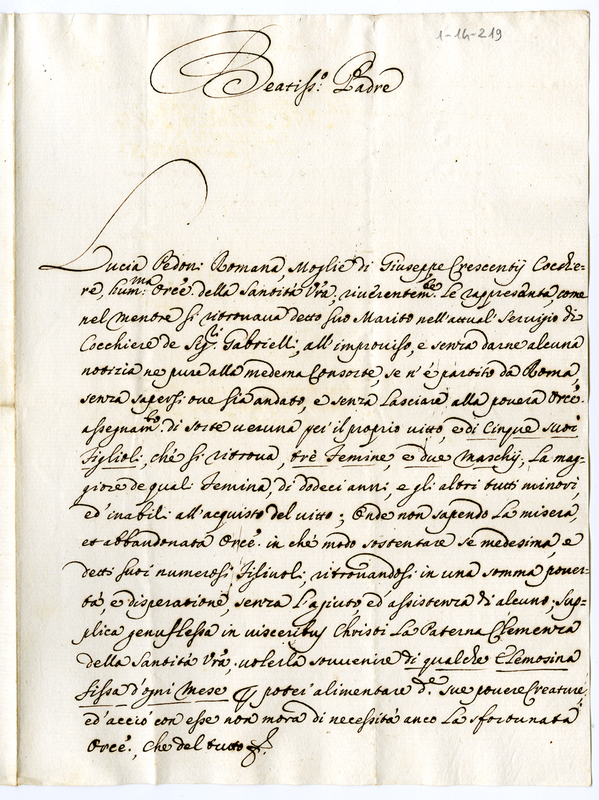 1-14-219
Beatiss.o Padre
Lucia Pedoni Romana, Moglie di Giuseppe Crescentij Cocchie=
re, hum.ma Orcē. della Santità Vrā, riverentem.te Le rappresenta, come
nel mentre si ritrovava detto suo Marito nell'attual' Servigio di
Cocchiere de Sig.ri Gabrielli, all'improviso, e senza darne alcuna
notizia ne pure alla medema Consorte, se n'è partito da Roma,
senza sapersi ove sia andato, e senza lasciare alla povera Orcē.
assegnam.to di sorte veruna per il proprio vitto, e di Cinque suoi
Figlioli, che si ritrova, trè Femine, e due Maschij, La mag=
giore de quali Femina, di dodeci anni, e gli altri tutti minori,
ed'inabili all'acquisto del vitto; Onde non sapendo La misera,
et abbandonata Orcē. in che modo sostentare se medesima, e
detti suoi numerosi Figlivoli, ritrovandosi in una somma pover=
tà, e disperatione, senza L'agiuto, ed'assistenza di alcuno, Sup=
plica genuflessa in visceribus Christi La Paterna Clemenza
della Santità Vrā, volerla sovvenire di qualche Elemosina
fissa d'ogni Mese p poter' alimentare d.e sue povere Creature,
ed'acciò con esse non mora di necessità anco La sfortunata
Orcē., Che del tutto &.